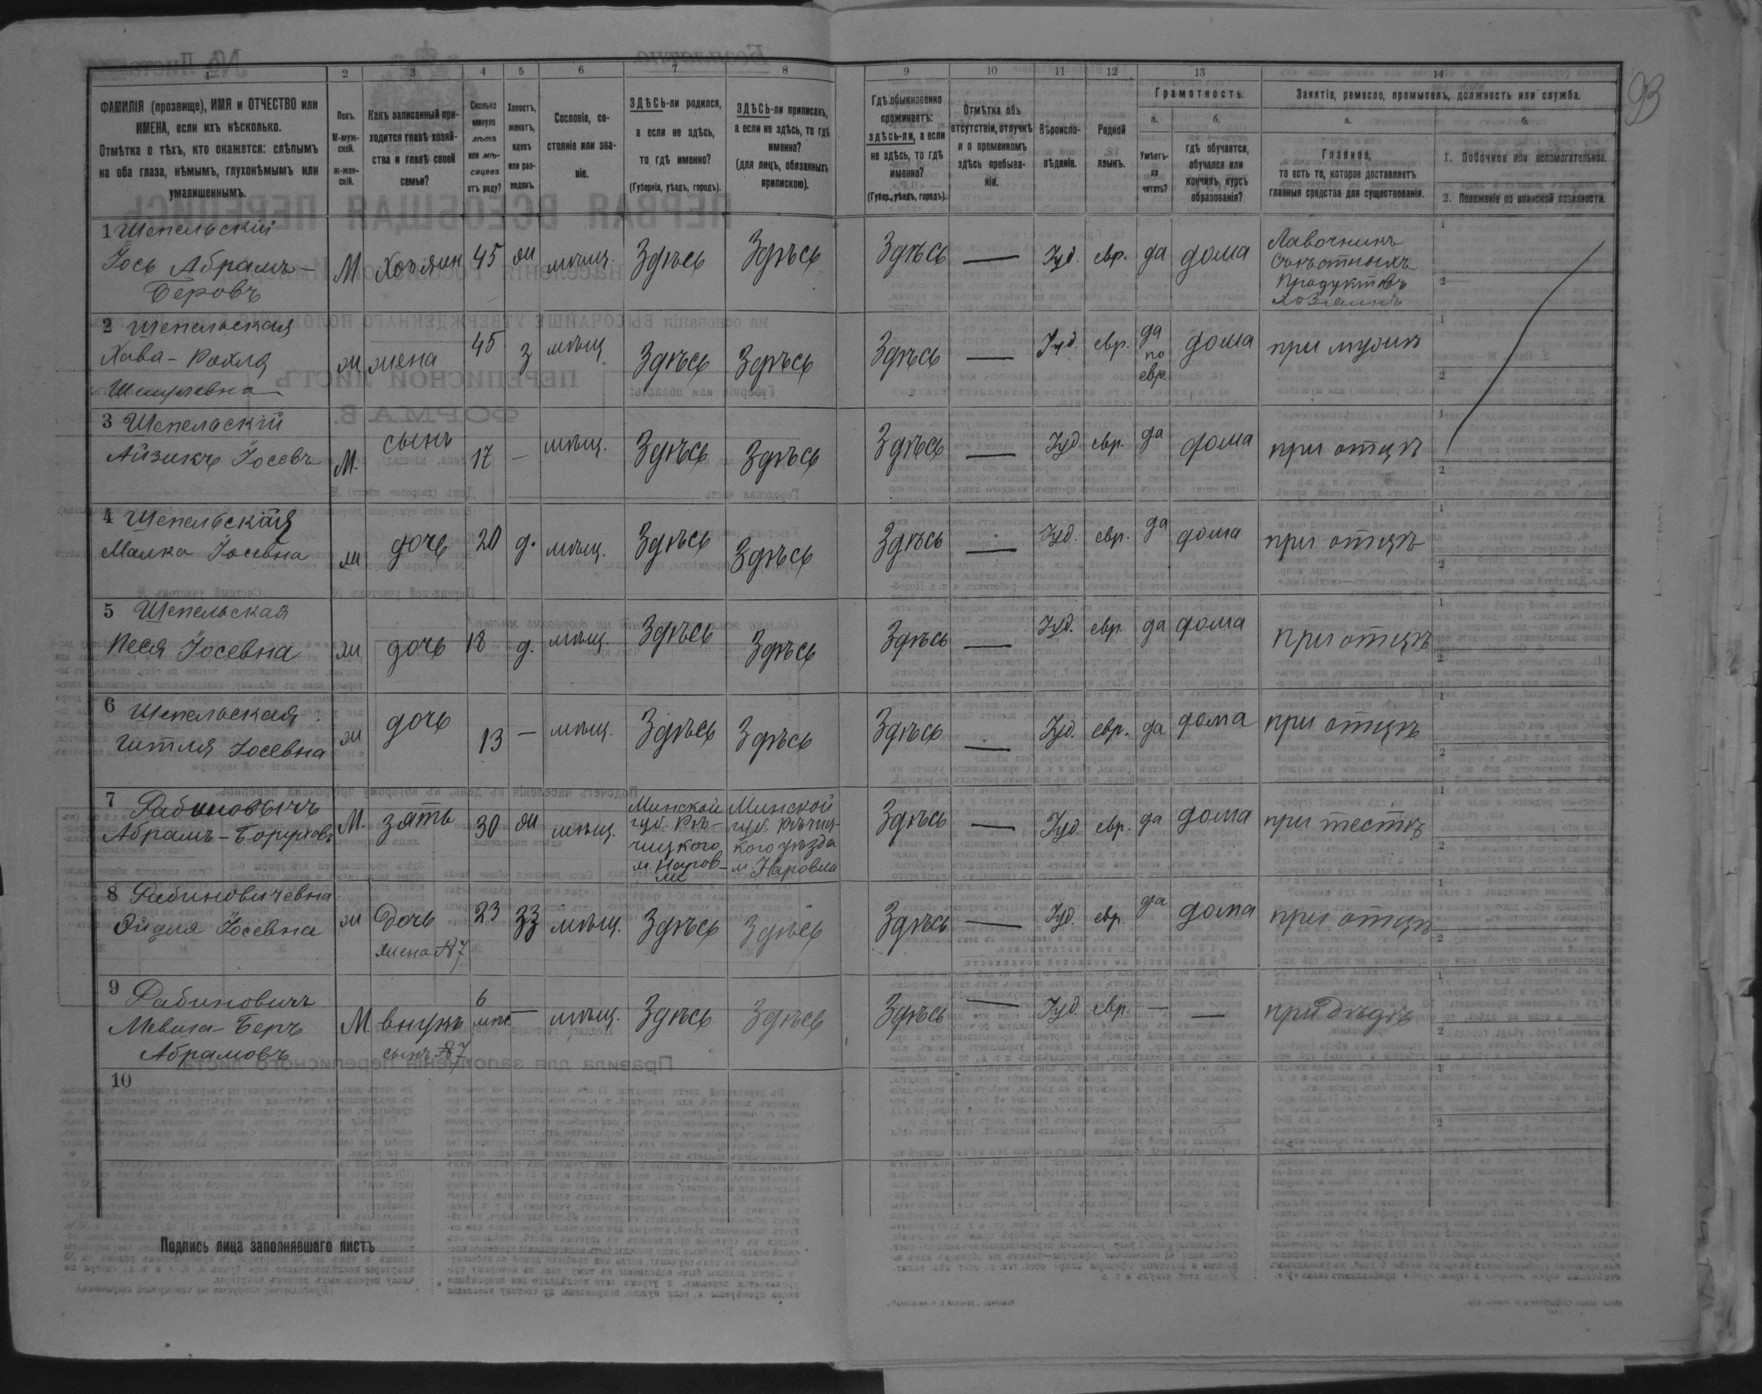 93
1 2 3 4 5 6 7 8 9 10 11 12 13 14
ФАМИЛІЯ (прозвище), ИМЯ и ОТЧЕСТВО или
ИМЕНА, если ихъ нѣсколько.
Отмѣтка о тѣхъ, кто окажется: слѣпымъ
на оба глаза, нѣмымъ, глухонѣмымъ или
умалишеннымъ.
Полъ.
М-муж-
ской.
ж-жен-
скій.
Какъ записанный при-
ходится главѣ хозяй-
ства и главѣ своей
семьи?
Сколько
минуло
лѣтъ
или мѣ-
сяцевъ
отъ роду?
Холостъ,
женатъ,
вдовъ
или раз-
веденъ.
Сословіе, со-
стояніе или зва-
ніе.
ЗДѢСЬ-ли родился,
а если не здѣсь,
то гдѣ именно?
(Губернія, уѣздъ, городъ).
ЗДѢСЬ-ли приписанъ,
а если не здѣсь, то гдѣ
именно?
(для лицъ, обязанныхъ
припискою).
Гдѣ обыкновенно
проживаетъ:
здѣсь-ли, а если
не здѣсь, то гдѣ
именно?
(Губер., уѣздъ, городъ).
Отмѣтка объ
отсутствіи, отлучкѣ
и о временномъ
здѣсь пребыва-
ніи.
Вѣроиспо-
вѣданіе.
Родной
языкъ.
Грамотность.
а.
Умѣетъ-
ли
читать?
б.
гдѣ обучается,
обучался или
кончилъ курсъ
образованія?
Занятія, ремесло, промыселъ, должность или служба.
а.
Главное,
то есть то, которое доставляетъ
главныя средства для существованія.
б.
1. Побочное или вспомогательное.
2. Положеніе по воинской повинности.
1 Шепельскій
Іось Абрамъ-
Беровъ
М. Хозяин 45 ж мѣщ. Здѣсь Здѣсь Здѣсь — Іуд. евр. да дома
Лавочникъ
съѣстныхъ
Продуктовъ
хозяинъ
2 Шепельская
Хава-Рохля
ж жена 45 з мѣщ. Здѣсь Здѣсь Здѣсь — Іуд. евр.
да
по
евр.
дома при мужѣ
3 Шепельскій
Айзикъ Іосевъ
М. сынъ 17 — мѣщ. Здѣсь Здѣсь Здѣсь — Іуд. евр. да дома при отцѣ
4 Шепельская
Малка Іосевна
ж дочь 20 д. мѣщ. Здѣсь Здѣсь Здѣсь — Іуд. евр. да дома при отцѣ
5 Шепельская
Песя Іосевна
ж дочь 18 д. мѣщ. Здѣсь Здѣсь Здѣсь — Іуд. евр. да дома при отцѣ
6 Шепельская
Гитля Іосевна
ж дочь 13 — мѣщ. Здѣсь Здѣсь Здѣсь — Іуд. евр. да дома при отцѣ
7 Рабиновичъ
Абрамъ-Боруховъ
М. зять 30 ж мѣщ.
Минской
губ. Рѣ-
чицкого
м. Наров-
ля
Минской
губ. Рѣчиц-
кого уѣзда
м. Наровля
Здѣсь — Іуд. евр. да дома при тестѣ
8 Рабиновичевна
Эйдля Іосевна
ж Дочь
жена №7
23 з мѣщ. Здѣсь Здѣсь Здѣсь — Іуд. евр. да дома при отцѣ
9 Рабиновичъ
Беръ
Абрамовъ
М внукъ
сынъ №7
6
мѣс
— мѣщ. Здѣсь Здѣсь Здѣсь — Іуд. евр. — — при Дѣдѣ
10
Подпись лица заполнявшаго листъ